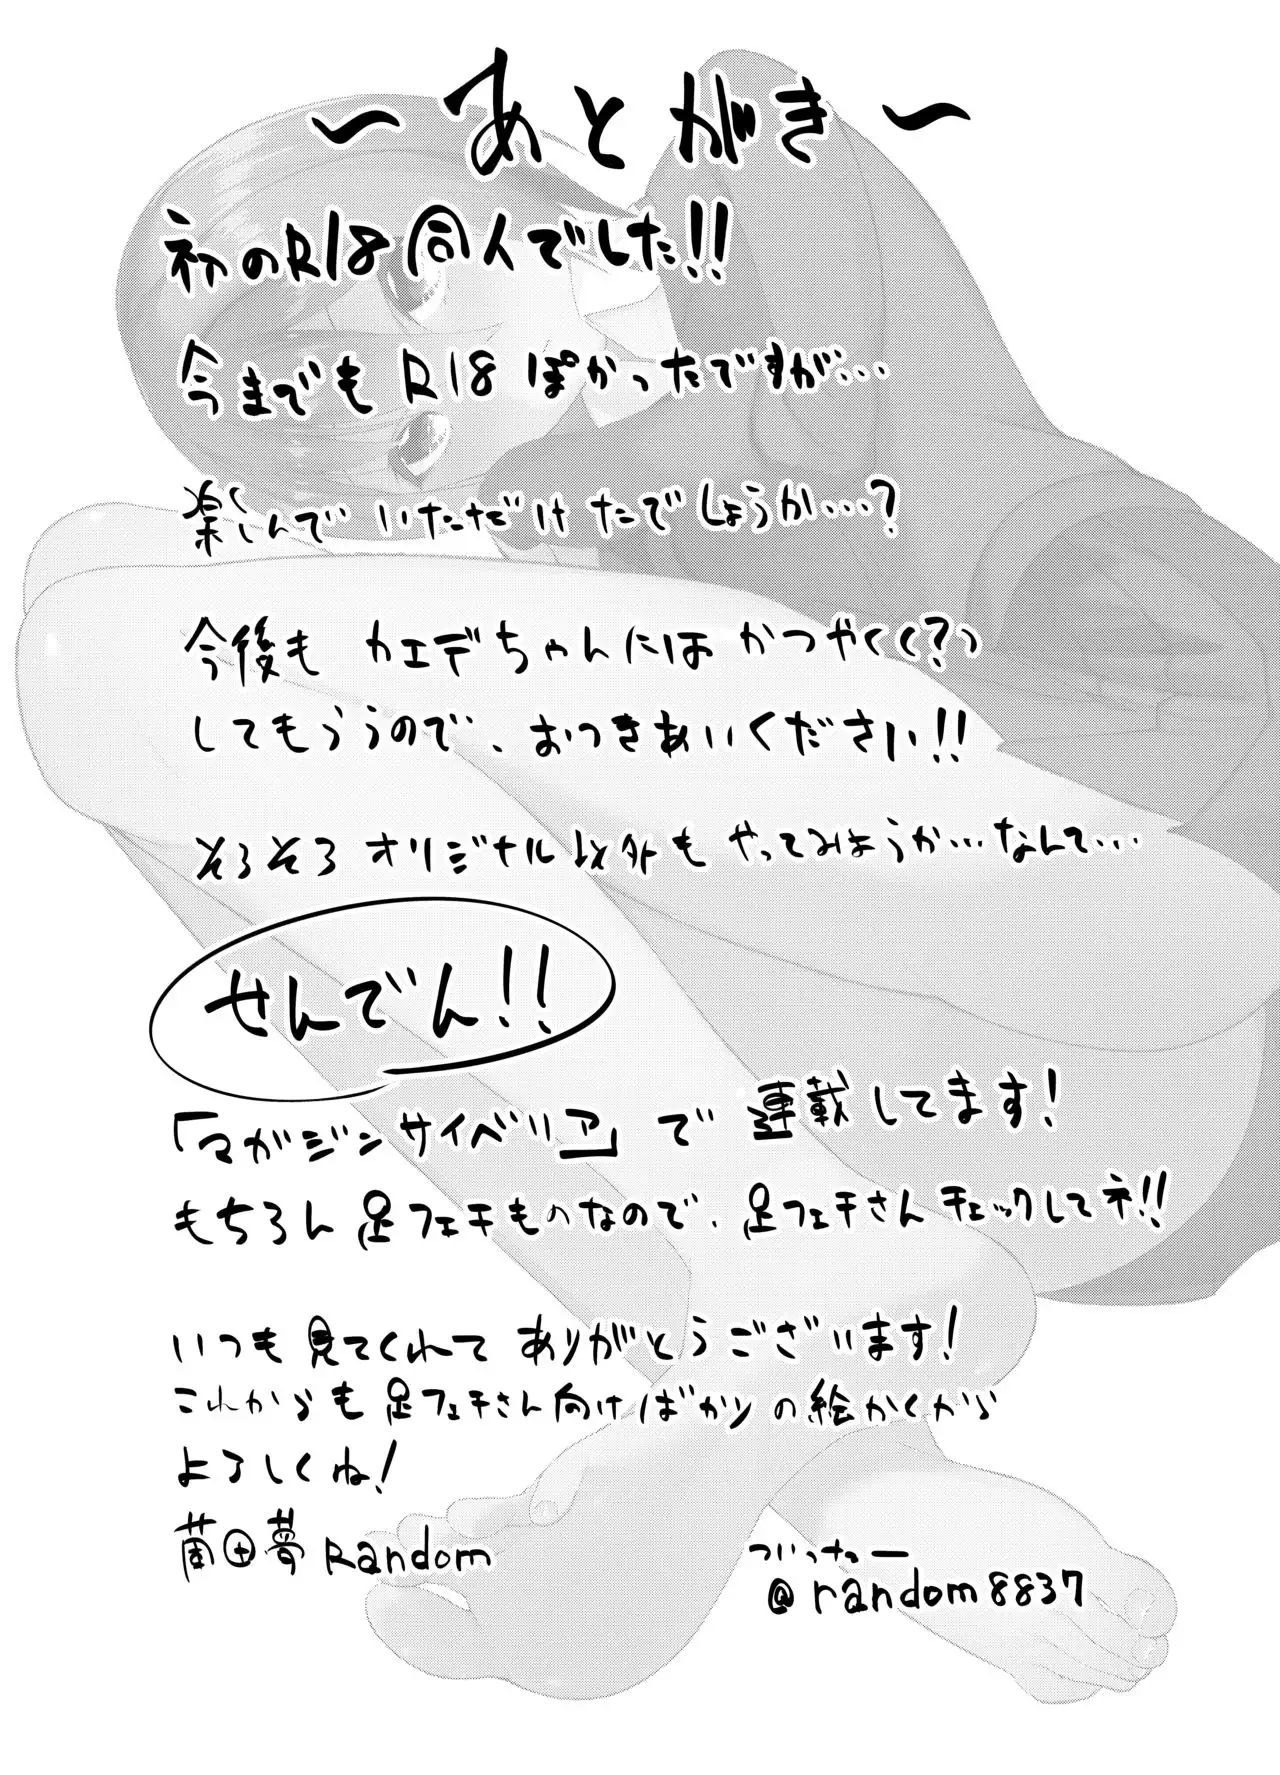 ～あとがき～
初のR18同人でした!!
今までもR18ぽかったですが…
楽しんでいただけたでしょうか…?
今後もカエデちゃんにはかつやく(?)
してもらうので、おつきあいください!!
そろそろオリジナル以外もやってみようか…なんて…
せんでん!!
「マガジンサイベリア」で連載してます!
もちろん足フェチものなので、足フェチさんチェックしてネ!!
いつも見てくれてありがとうございます!
これからも足フェチさん向けばかりの絵かくから
よろしくね!
蘭田夢Random
ついったー
@random8837